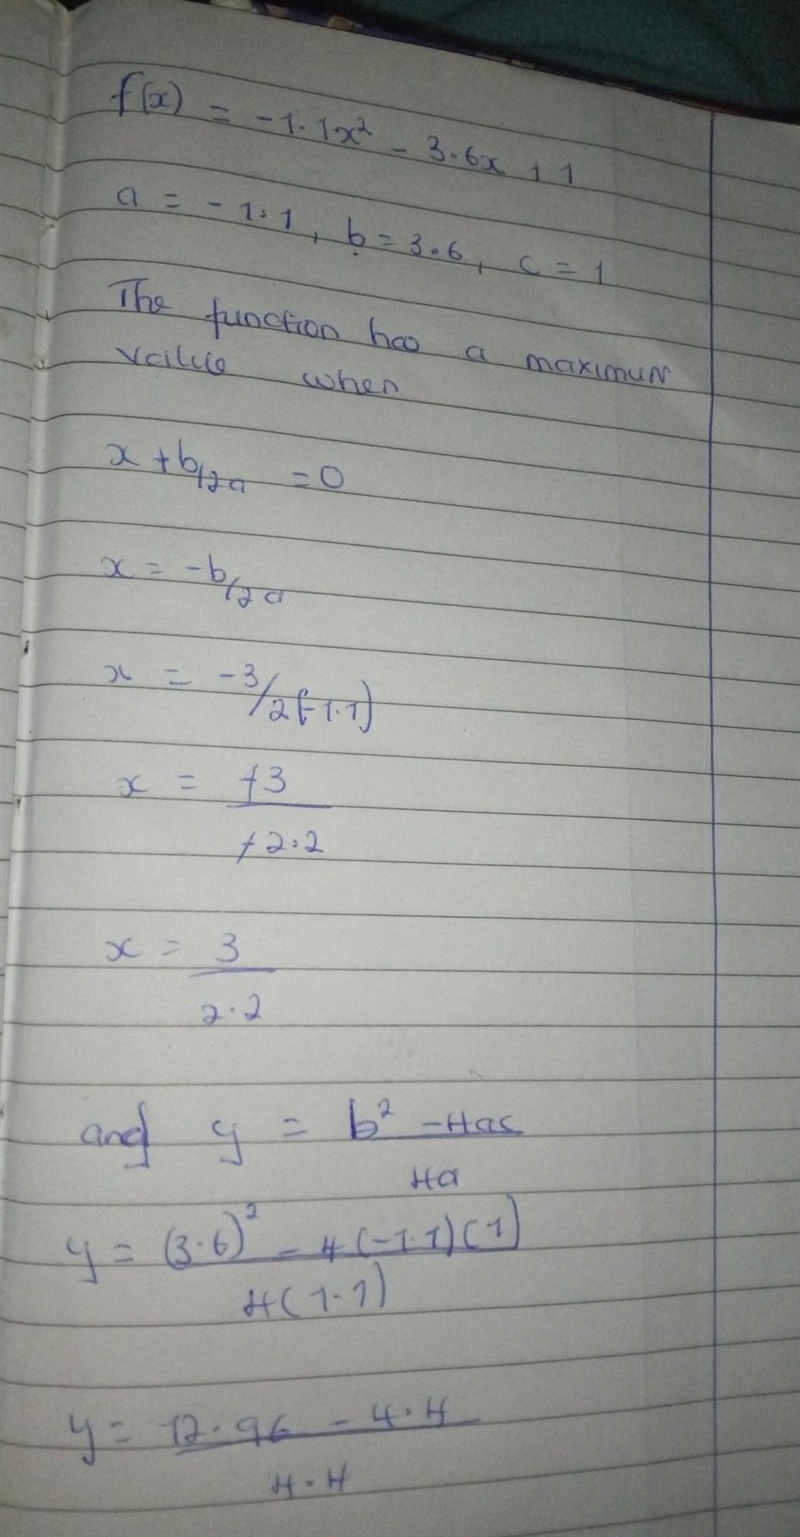 f(x) = -1.1x² - 3.6x + 1
a = -1.1, b = 3.6, c = 1
The function has a maximum
value when
x + b/2a = 0
x = -b/2a
x = -3/2(-1.1)
x = -3
-2.2
x = 3
2.2
and y = b² - 4ac
4a
y = (3.6)² - 4(-1.1)(1)
4(1.1)
y = 12.96 - 4.4
4.4